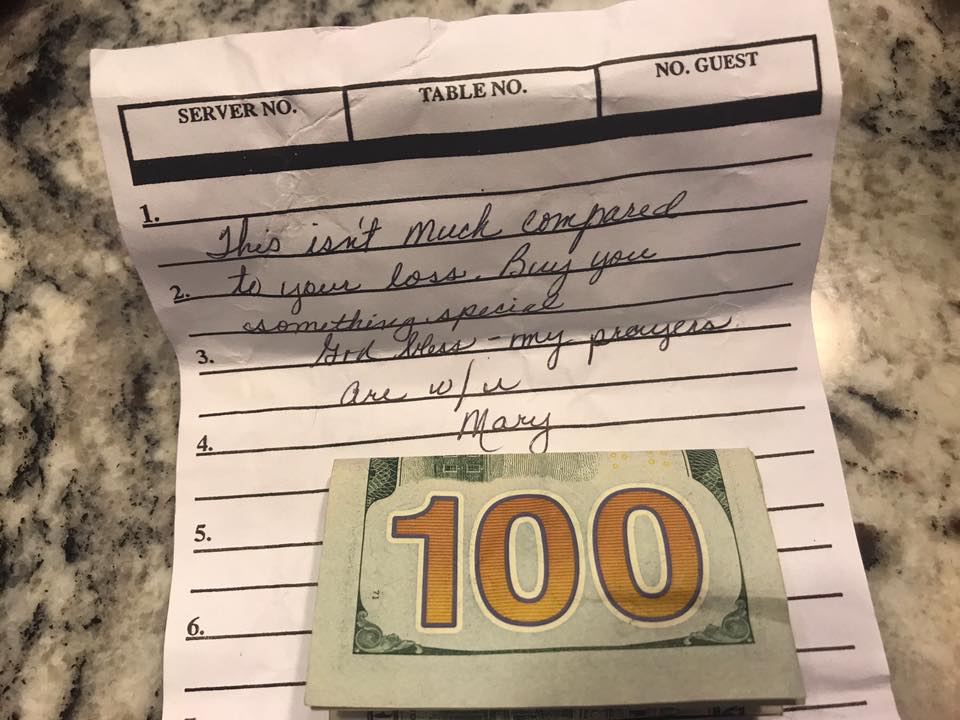 SERVER NO. TABLE NO. NO. GUEST
1.
This isn't much compared
2. to your loss. Buy you
something special
3. God bless - my prayers
are w/u
4. Mary
5.
100
71
6.